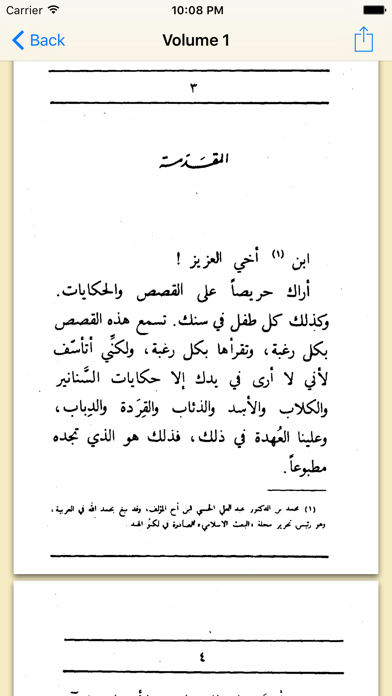 Carrier 10:08 PM
Back Volume 1
٣
المقَدّمة
ابن (١) أخي العزيز !
أراك حريصاً على القصص والحكايات.
وكذلك كل طفل في سنك. تسمع هذه القصص
بكل رغبة، وتقرأها بكل رغبة، ولكنِّي أتأسّف
لأني لا أرى في يدك إلا حكايات السَّنانير
والكلاب والأسد والذئاب والقِرَدة والدِباب،
وعلينا العُهدة في ذلك، فذلك هو الذي تجده
مطبوعاً.
(١) محمد بن الدكتور عبد العلي الحسني ابن أخ المؤلف، وقد نبغ بحمد الله في العربية،
وهو رئيس تحرير مجلة «البعث الاسلامي» الصادرة في لكنؤ الهند
٤